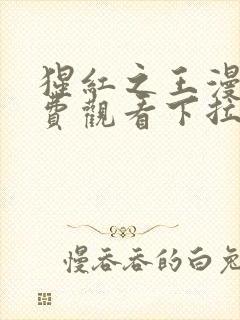 猩紅之王漫
費觀看下拉
慢吞吞的白兔